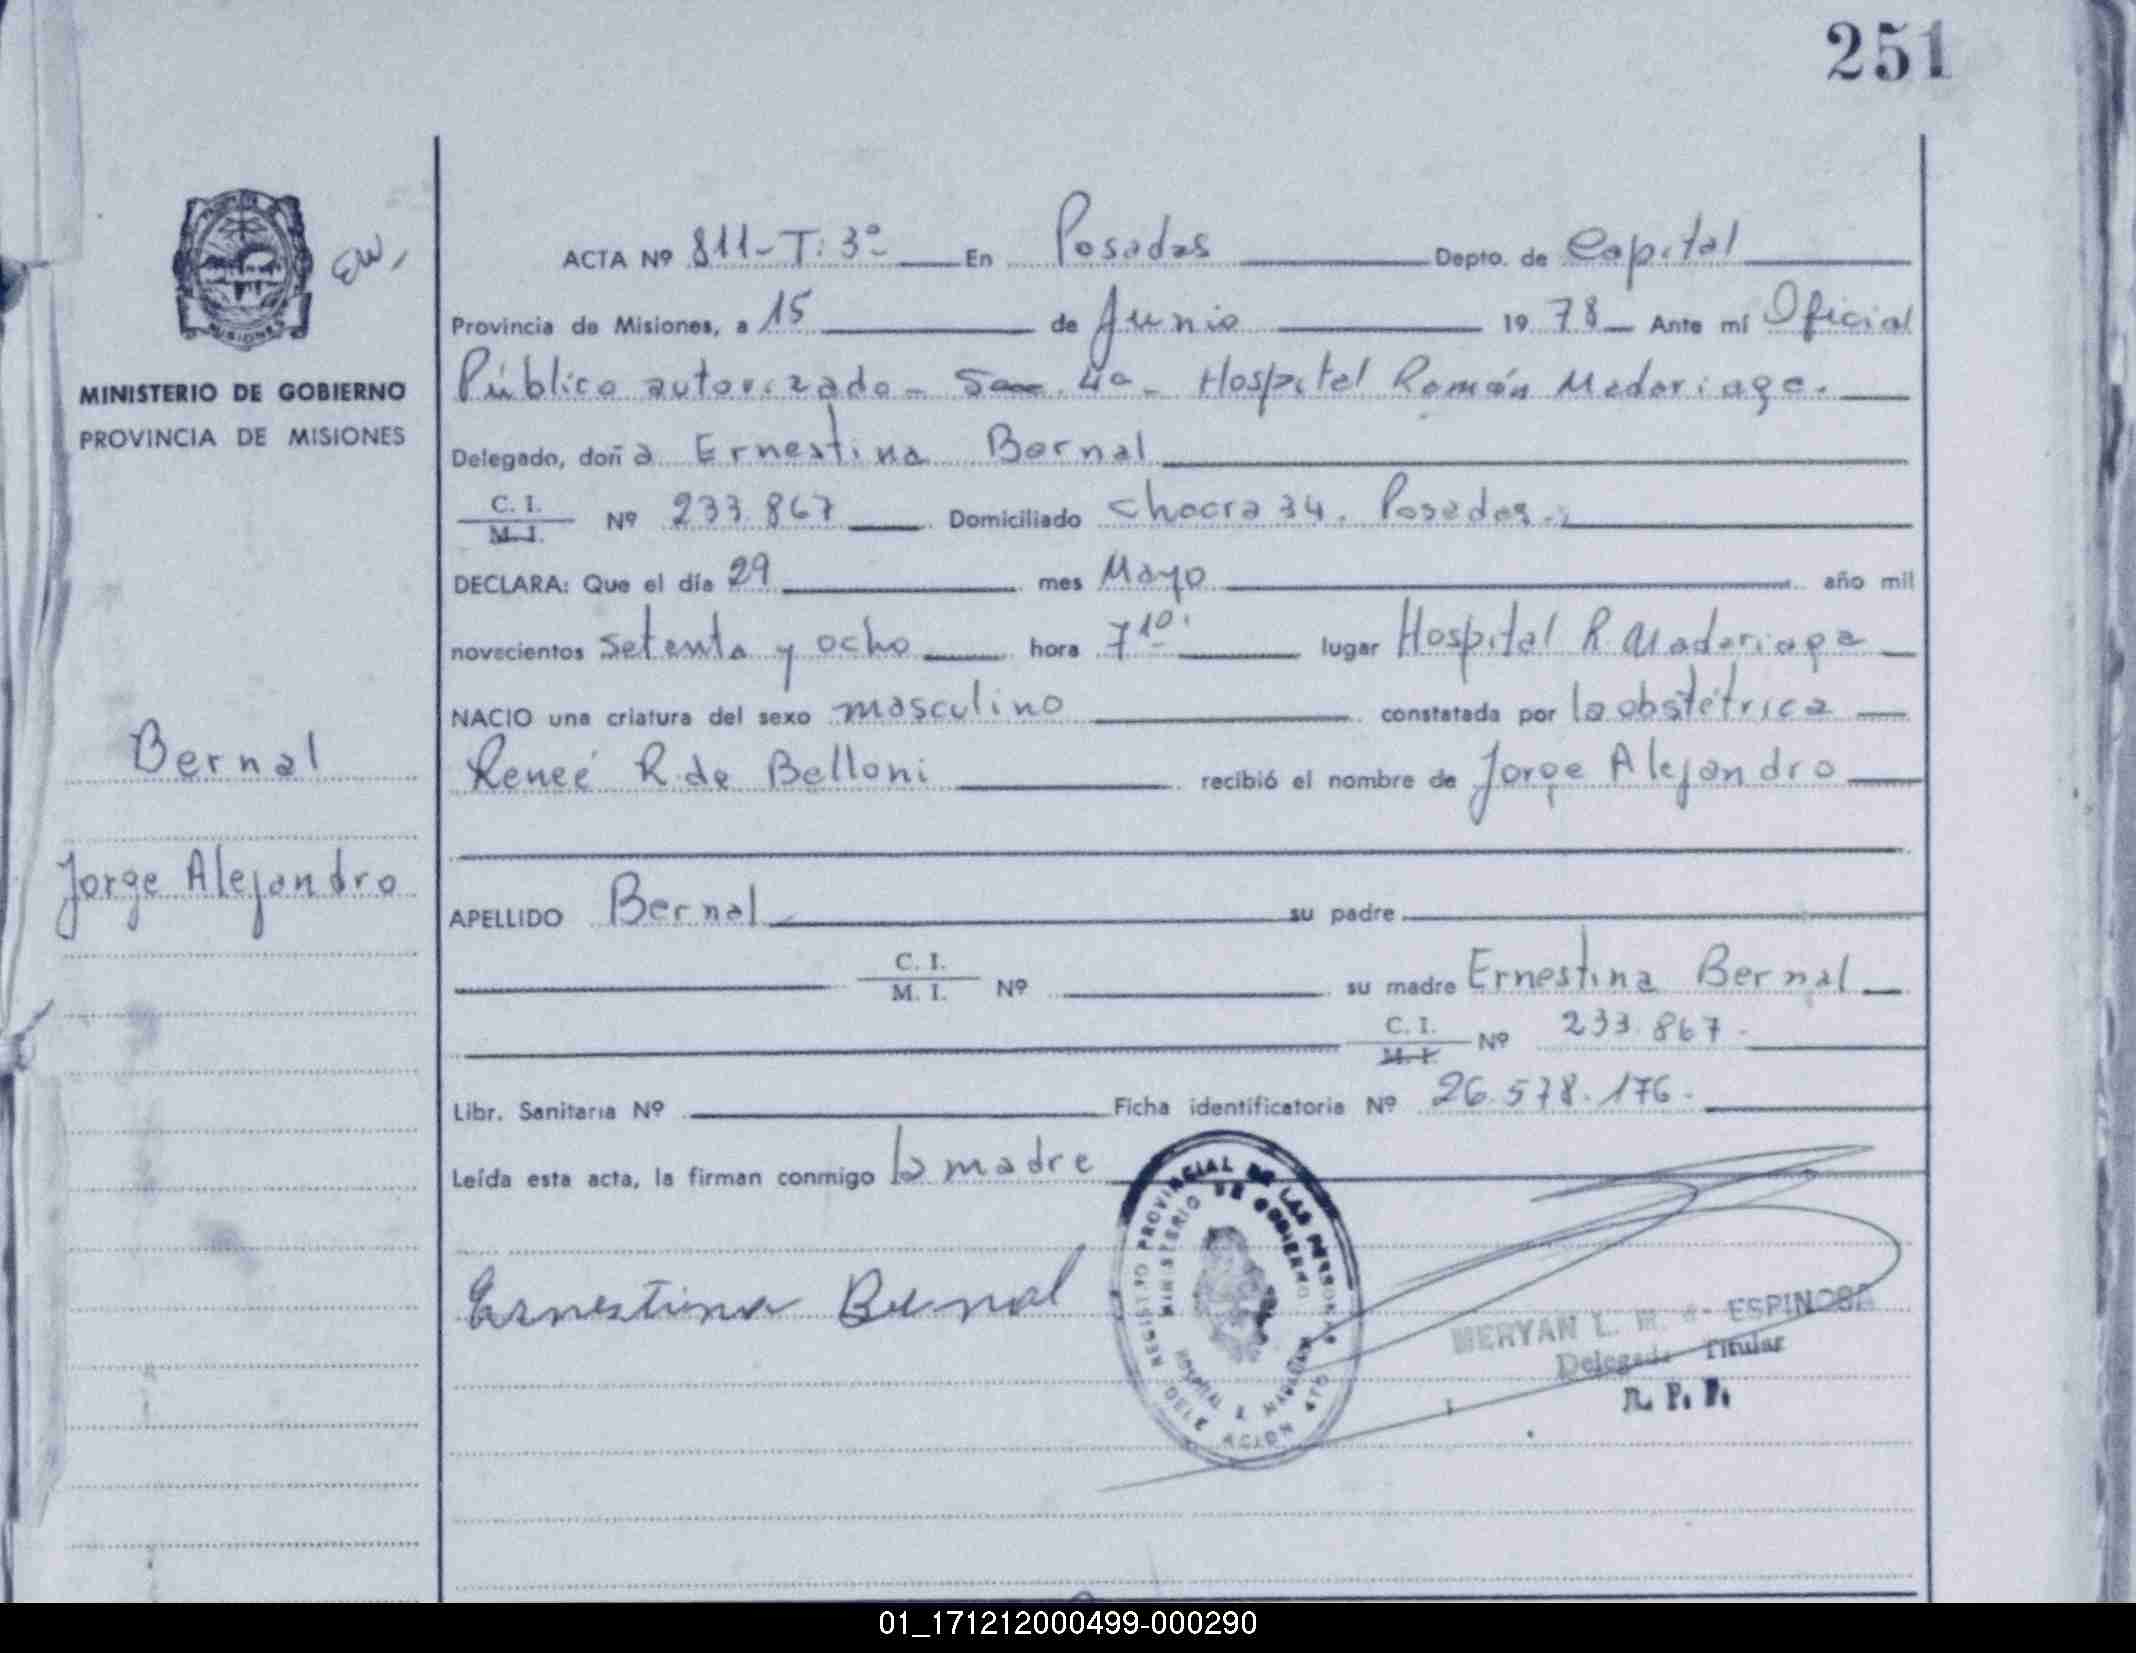 251
ACTA Nº 811-T: 3º En Posadas Depto. de Capital
Provincia de Misiones, a 15 de Junio 1978 Ante mí Oficial
Público autorizado - 4ª - Hospital Ramón Madariaga.
Delegado, doña Ernestina Bernal
C. I. M. I. Nº 233.867 Domiciliado Chacra 34. Posadas.
DECLARA: Que el día 29 mes Mayo año mil
novecientos setenta y ocho hora 7 10' lugar Hospital R. Madariaga
NACIO una criatura del sexo masculino constatada por la obstétrica
Reneé R. de Belloni recibió el nombre de Jorge Alejandro
APELLIDO Bernal su padre
C. I. M. I. Nº su madre Ernestina Bernal
C. I. M. I. Nº 233.867.
Libr. Sanitaria Nº Ficha identificatoria Nº 26.578.176.
Leída esta acta, la firman conmigo la madre
Ernestina Bernal
REGISTRO PROVINCIAL DE LAS PERSONAS
MINISTERIO DE GOBIERNO
HOSPITAL R. MADARIAGA
DELEGACION 4TO
MERYAN L. M. de ESPINOSA
Delegada Titular
R. P. P.
MISIONES
MINISTERIO DE GOBIERNO
PROVINCIA DE MISIONES
Bernal
Jorge Alejandro
01_171212000499-000290